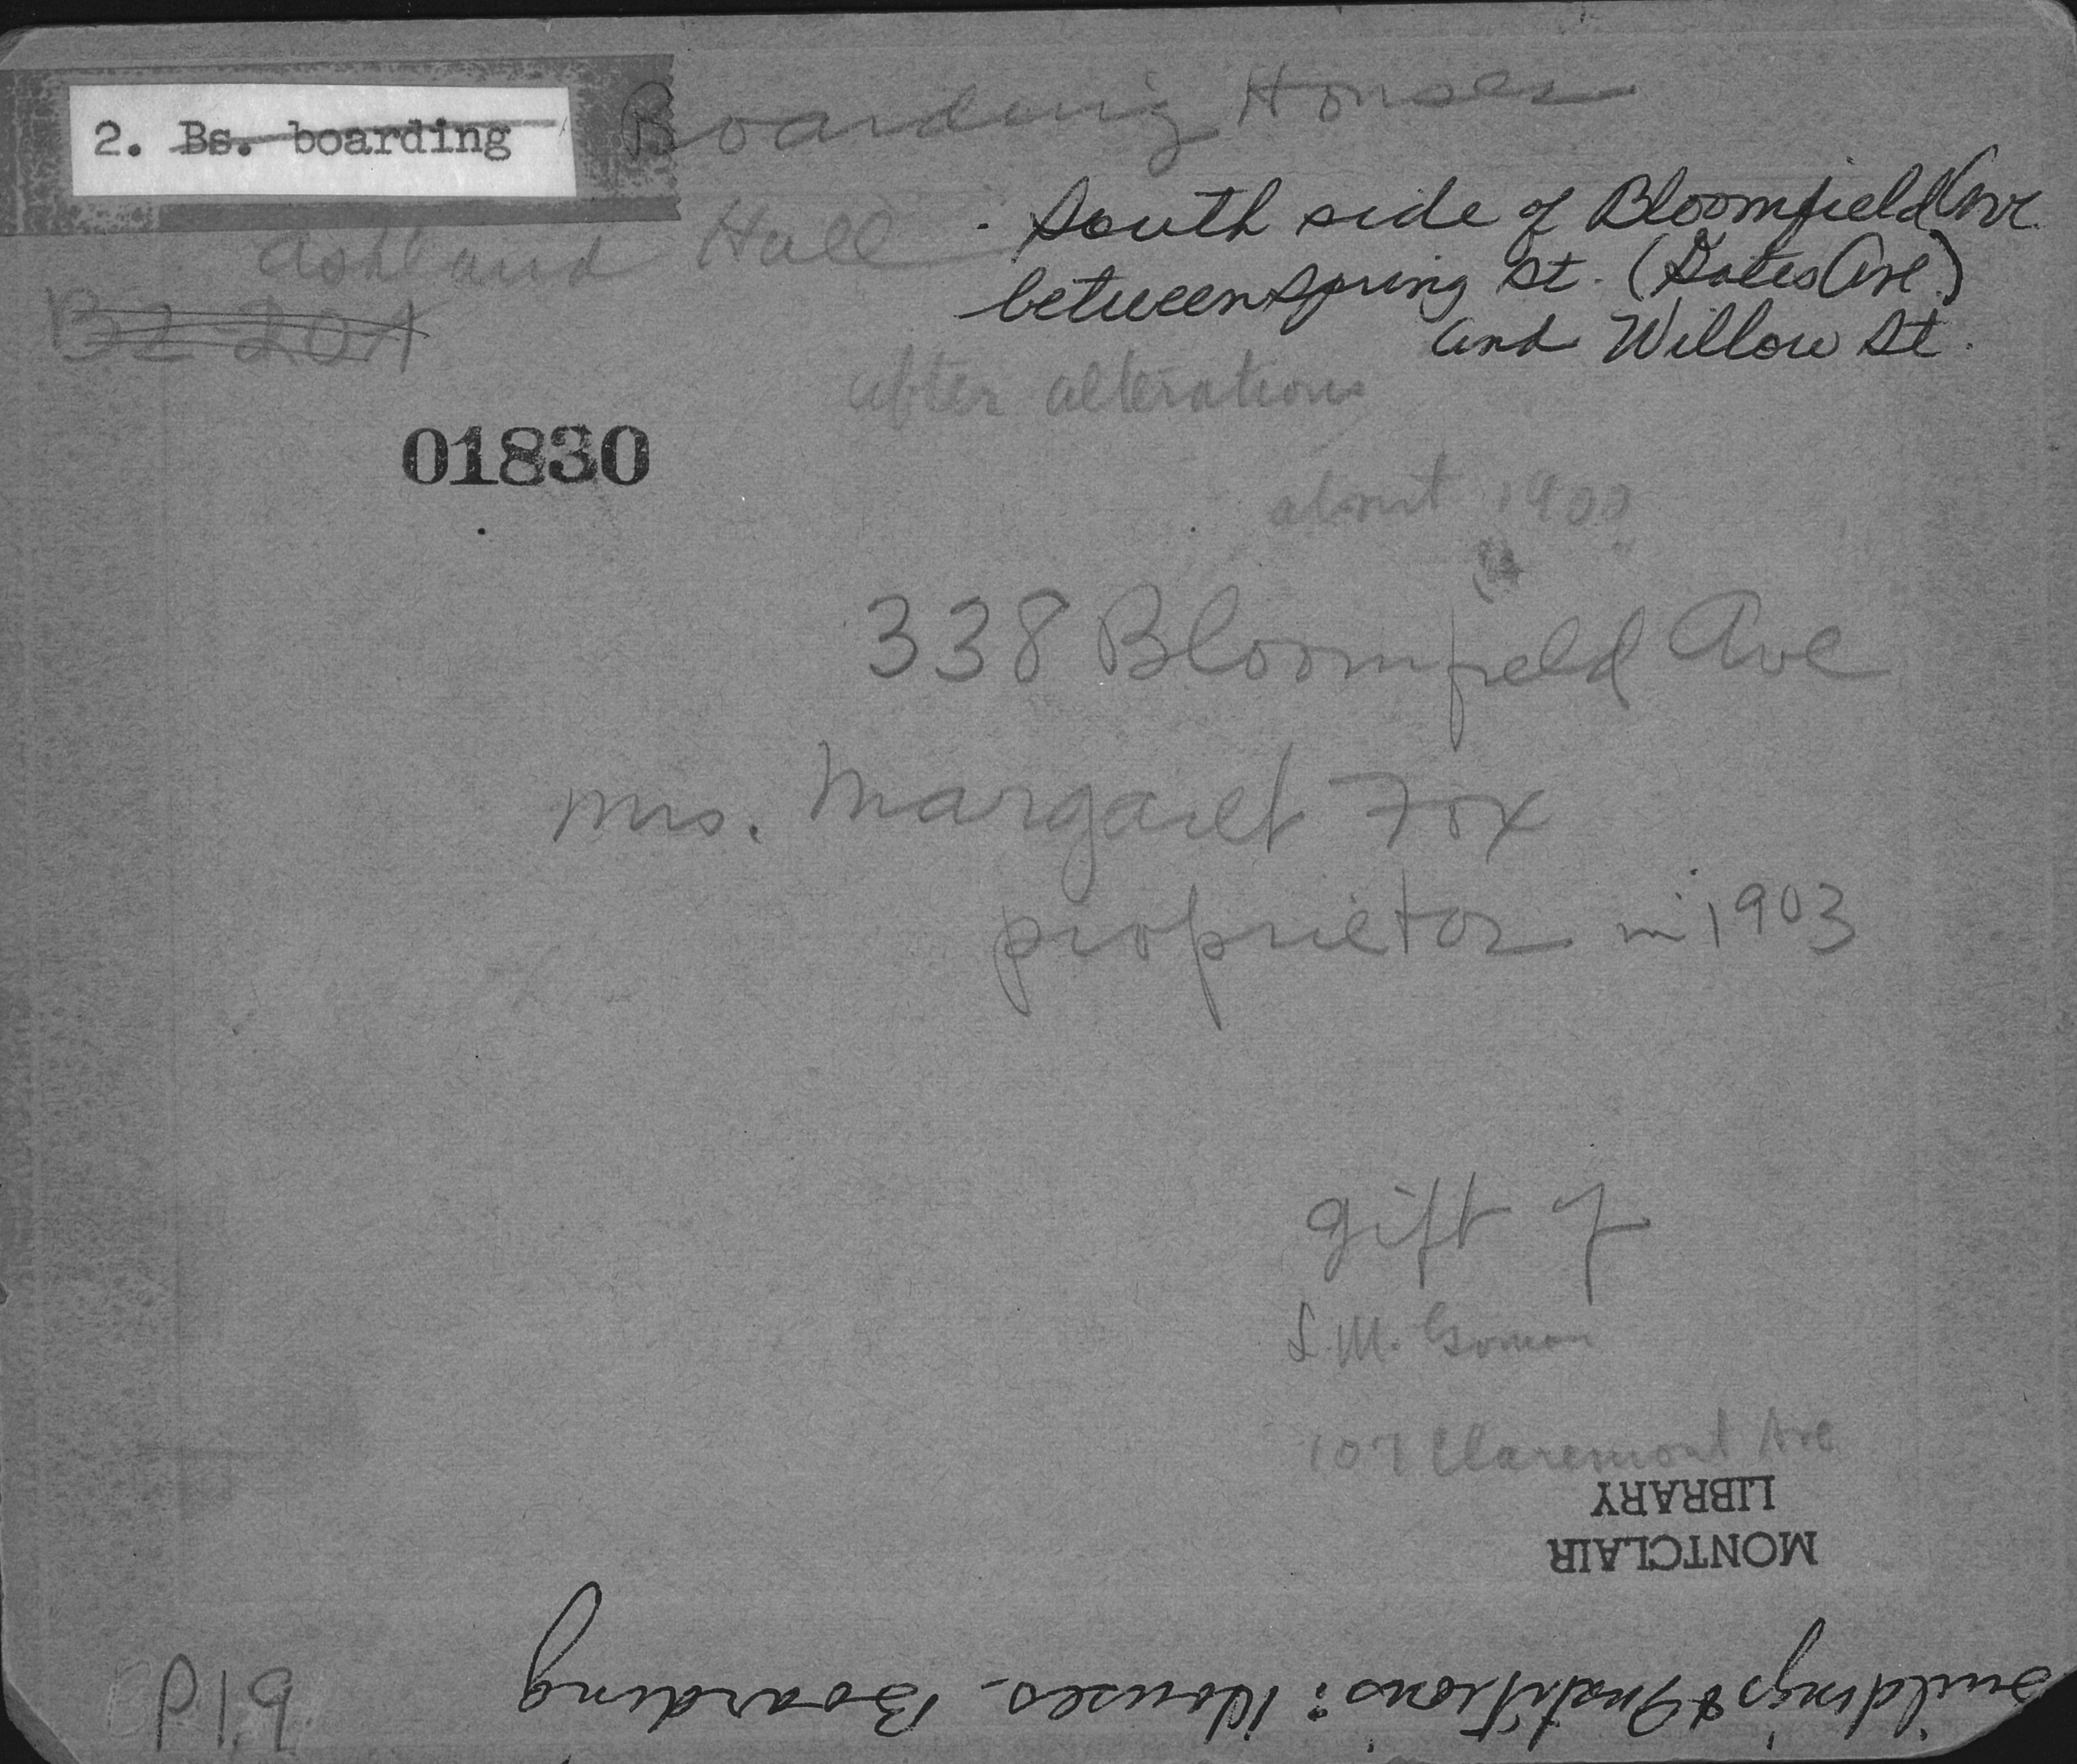 2. Bs. boarding
Boarding Houses
Ashland Hall
South side of Bloomfield Ave
between Spring St. (Gates Ave.)
and Willow St.
B2-20A
after alterations
01830
about 1900
338 Bloomfield Ave
Mrs. Margaret Fox
proprietor in 1903
gift of
107 Claremont Ave
LIBRARY
MONTCLAIR
Buildings & Institions: Houses - Boarding
P19